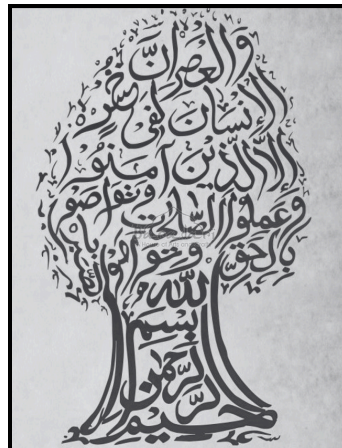 والعصر إن
الإنسان لفي خسر
إلا الذين آمنوا
وعملوا الصالحات وتواصوا
بالحق وتواصوا بالصبر
بسم الله
الرحمن
الرحيم